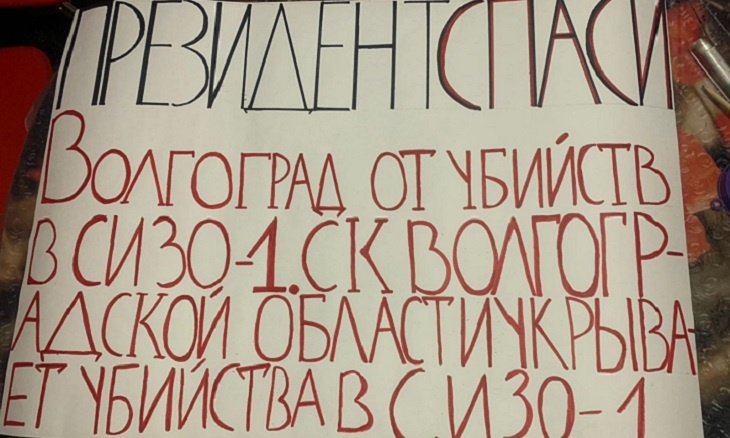 ПРЕЗИДЕНТ СПАСИ
ВОЛГОГРАД ОТ УБИЙСТВ
В СИЗО-1. СК ВОЛГОГР-
АДСКОЙ ОБЛАСТИ УКРЫВА-
ЕТ УБИЙСТВА В СИЗО-1